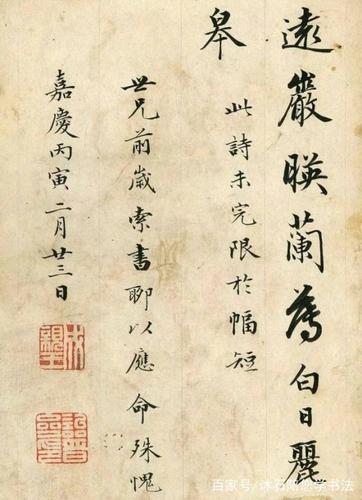 遠巖暎蘭薄白日麗
皋
此詩未完限於幅短
世兄前歲索書聊以應命殊愧
嘉慶丙寅二月廿三日
成親王
詒晉齋印
百家号/沐石陪您学书法